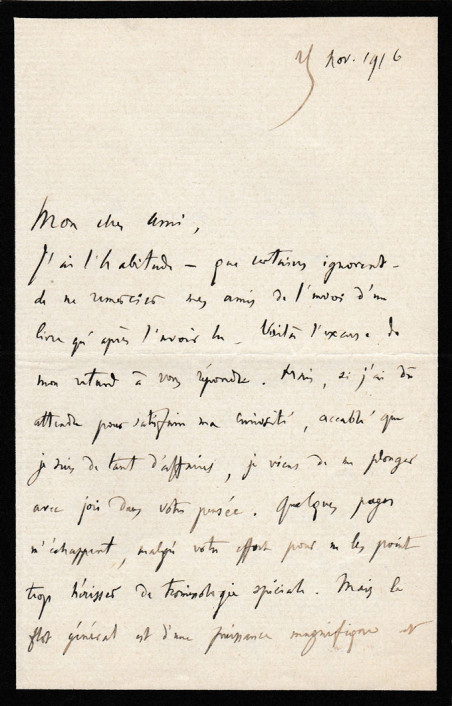 Nov. 1916
Mon cher ami,
J'ai l'habitude – que certains ignorent –
de ne remercier mes amis de l'envoi d'un
livre qu'après l'avoir lu. Voilà l'excuse de
mon retard à vous répondre. Mais, si j'ai dû
attendre pour satisfaire ma curiosité, accablé que
je suis de tant d'affaires, je viens de me plonger
avec joie dans votre pensée. Quelques pages
m'échappent, malgré votre effort pour ne les point
trop hérisser de terminologie spéciale. Mais le
flot général est d'une puissance magnifique et